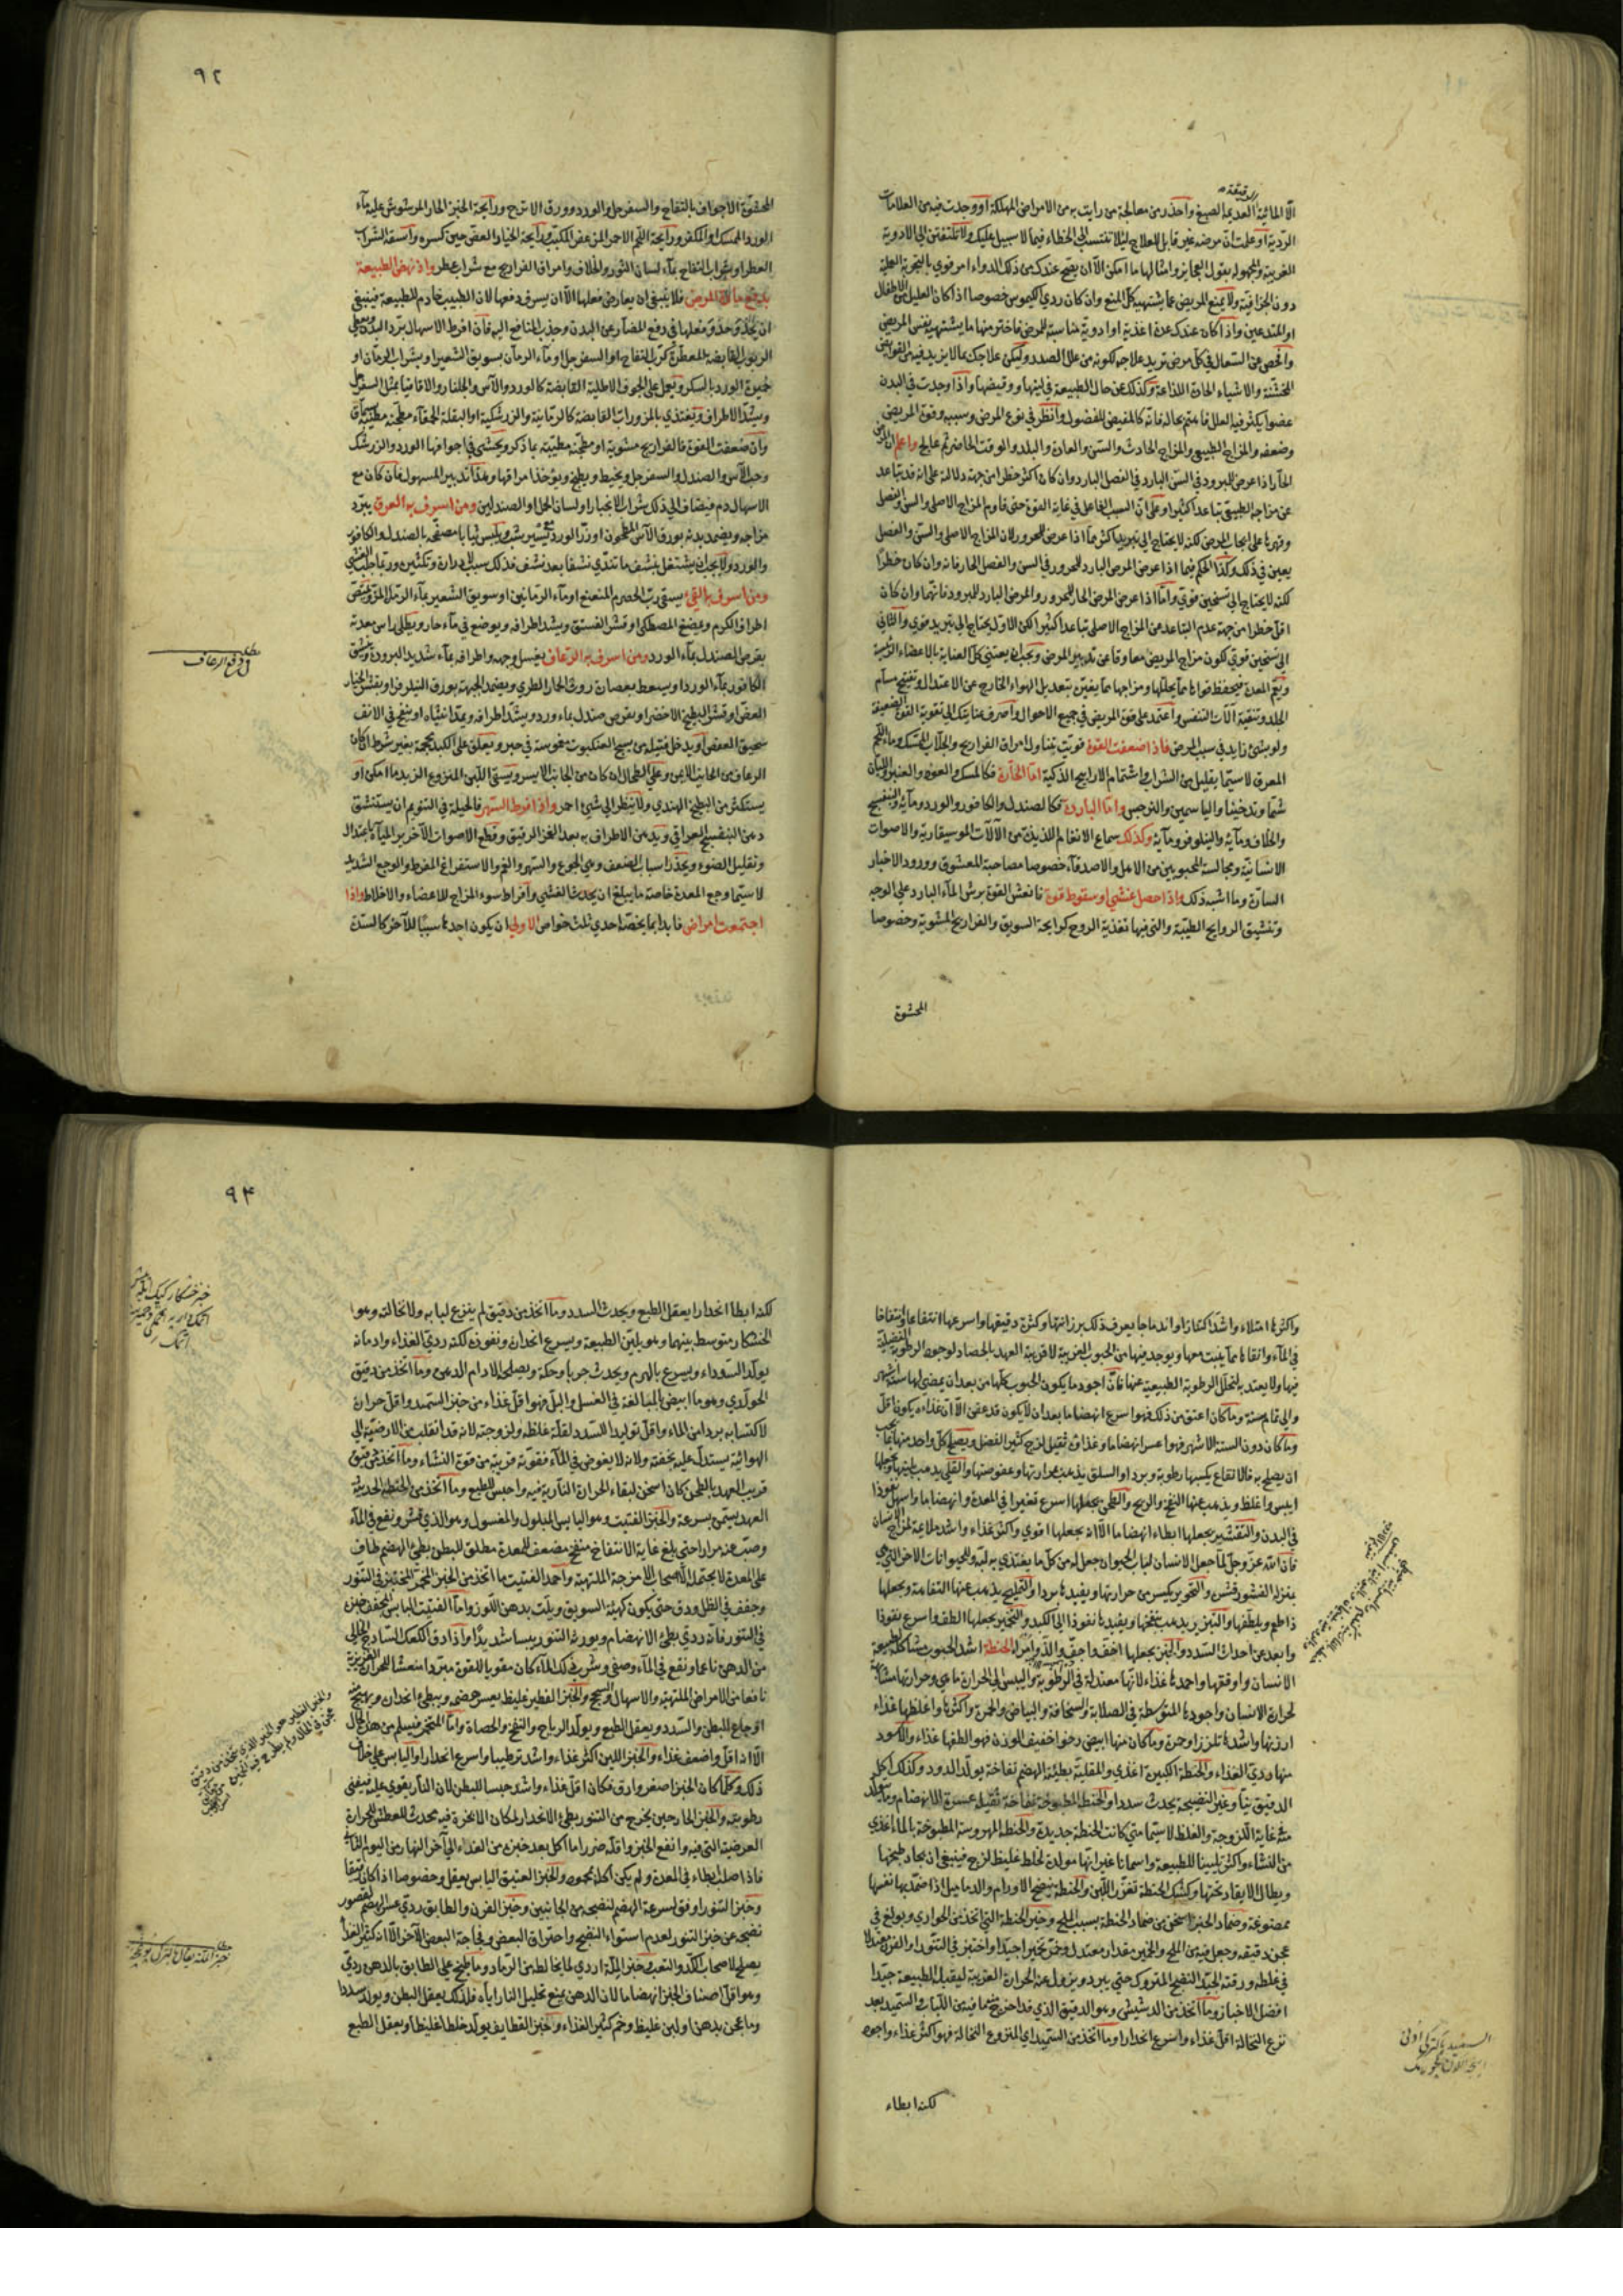 ٩٢
دقيقة
الا المائية العديمة الصبغ واحذر من معالجة من رايت به من الامراض المهلكة او وجدت فيه من العلامات
الردية او علمت ان مرضه غير قابل للعلاج ليلا تنتسب الى الخطاء فيما لا سبيل عليك ولا تلتفتن الى الادوية
الغريبة والمجهولة بقول العجايز وامثالها ما امكن الا ان يصح عندك من ذلك الدواء امر قوي بالتجربة
دون الجزافية ولا يمنع المريض مما يشتهيه كل المنع وان كان ردي الكيموس خصوصا اذا كان العليل من الاطفال
او المتدعين واذا كان عندك عدة اغذية او ادوية مناسبة للمرض فاختر منها ما يشتهيه نفس المريض
وافحص عن السعال في كل مرض تريد علاجه لكونه من علل الصدر وليكن علاجك بما لا يزيد فيه من القوابض
المخشنة والاشياء الحادة اللذاعة وكذلك عن حال الطبيعة في لينها وقبضها واذا وجدت في البدن
عضوا يكثر فيه العلل فاهتم بحاله فانه كالمفيض للفضول وانظر في نوع المرض وسببه وقوة المريض
وضعفه والمزاج الطبيعي والمزاج الحادث والسن والعادة والبلد والوقت الحاضر ثم عالج واعلم ان المرض
الحار اذا عرض للمبرود في السن البارد في الفصل البارد وان كان اكثر خطرا من جهة دلالته على انه قد تباعد
عن مزاجه الطبيعي تباعدا كثيرا وعلى ان السبب الفاعلي في غاية القوة حتى قاوم المزاج الاصلي والسن والفصل
وقهرها على ايجاب المرض لكنه لا يحتاج الى تبريد اكثر مما اذا عرض للمحرور لان المزاج الاصلي والسن والفصل
يعين في ذلك وكذا الحكم فيما اذا عرض المرض البارد للمحرور في السن والفصل الحار فانه وان كان خطرا
لكنه لا يحتاج الى تسخين قوي واما اذا عرض المرض الحار للمحرور والمرض البارد للمبرود فانهما وان كان
اقل خطرا من جهة عدم التباعد من المزاج الاصلي تباعدا كثيرا لكن الاول يحتاج الى تبريد قوي والثاني
الى تسخين قوي لكون مزاج المريض معاوقا عن تدبير المرض ويجب ان يعتني كل العناية بالاعضاء الرئيسة
وفم المعدة فيحفظ قواها مما يحللها ومزاجها مما يغيره بتعديل الهواء الخارج عن الاعتدال وتفتيح مسام
الجلد وتنقية آلات التنفس واعتمد على قوة المريض في جميع الاحوال واصرف عنايتك الى تقوية القوة الضعيفة
ولو بشئ زايد في سبب المرض فاذا ضعفت القوة قويت بتناول امراق الفراريج والجلاب الممسك وماء اللحم
المعرق لا سيما بقليل من الشراب واشتمام الاراييح الذكية اما الحارة فكالمسك والعود والعنبر واللبان
شما وتدخينا والياسمين والنرجس واما الباردة فكالصندل والكافور والورد ومآئه والبنفسج
والخلاف ومآئه والنيلوفر ومآئه وكذلك سماع الانغام اللذيذة من الآلات الموسيقارية والاصوات
الانسانية ومجالسة المحبوبين من الاهل والاصدقاء خصوصا مصاحبة المعشوق وورود الاخبار
السارة وما اشبه ذلك واذا حصل غشي او سقوط قوة فانعش القوة برش المآء البارد على الوجه
وتنشيق الروايح الطيبة والتي فيها تغذية الروح كرايحة السويق والفراريج المشوية وخصوصا
المحشوة
المحشوة الاجواف بالتفاح والسفرجل والورد وورق الاترج ورايحة الخبز الحار المرشوش عليه مآء
الورد الممسك او المكفر ورايحة اللحم الاحمر المرعفر المكبب ورايحة الخيار والعفص حين كسره واسقه الشراب
العطر او شراب التفاح بمآء لسان الثور والخلاف وامراق الفراريج مع شراب عطر واذا نهض الطبيعة
بدفع مادة المرض فلا ينبغي ان يعارض فعلها الا ان يسرف دفعها لان الطبيب خادم للطبيعة فينبغي
ان يحذو حذو فعلها في دفع المضار عن البدن وجذب المنافع اليه فان افرط الاسهال برد البدن
الربوب القابضة المعطرة كرب التفاح او السفرجل او مآء الرمان بسويق الشعير او بشراب الرمان او
خميرة الورد بالسكر ويعمل على الجوف الاطلية القابضة كالورد والآس والجلنار والاقاقيا بمثل السفرجل
ويشد الاطراف ويغتذي بالمزورات القابضة كالرمانية والزرشكية او البقلة الحمقاء مطجنة مطيبة بسماق
وان ضعفت القوة فالفراريج مشوية او مطجنة مطيبة بما ذكر ويحشى في اجوافها الورد والزرشك
وحب الآس والصندل والسفرجل ويخيط ويطبخ ويؤخذ امراقها وهذا تدبير المسهول فان كان مع
الاسهال دم فيضاف الى ذلك شراب الانجبار او لسان الحمل او الصندلين ومن اسرف به العرق يبرد
مزاجه ويضمد بدنه بورق الآس المطحون او زر الورد يسير شب ويلبس ثيابا مصقبه بالصندل والكافور
والورد ولا يجب ان يشتغل بنشف ما تندي نشفا بعد نشف فذلك سبب لادراره وتكثيره وربما جلب الغشي
ومن اسرف به القيء يسقى رب الحصرم المنعنع او مآء الرمانين او سويق الشعير بمآء الرمان المز ويمتص
اطراف الكرم ويمضغ المصطكى او قشر الفستق ويشد اطرافه ويوضع في مآء حار ويطلى راس معدته
بقرص الصندل بمآء الورد ومن اسرف به الرعاف يغسل وجهه واطرافه بمآء شديد البرودة
الكافور بمآء الورد او يسعط بعصارة روث الحمار الطري ويضمد الجبهة بورق النيلوفر او بقشر الخيار
العفص او قشر البطيخ الاخضر او بقرص صندل بماء ورد ويشد اطرافه ويمد انثياه او ينفخ في الانف
سحيق العفص او يدخل فتيلة من نسج العنكبوت مغموسة في حبر ويعلق على الكبد محجمة بغير شرط ان كان
الرعاف من الجانب الايمن وعلى الطحال ان كان من الجانب الايسر ويسقى اللبن المنزوع الزبد ما امكن او
يستكثر من البطيخ الهندي ولا ينظر الى شئ احمر واذا افرط السهر فالحيلة في التنويم ان يستنشق
دهن البنفسج العراقي ويدهن الاطراف به بعد الغمز الرقيق وقطع الاصوات الا خرير المياه باعتدال
وتقليل الضوء ويحذر اسباب الضعف وهي الجوع والسهر والغم والاستفراغ المفرط والوجع الشديد
لا سيما وجع المعدة خاصة ما يبلغ ان يحدث الغشي وافراط سوء المزاج للاعضاء والاخلاط واذا
اجتمعت امراض فابدا بما يخصه احدى ثلث خواص الاولى ان يكون احدهما سببا للآخر كالسدة
مطلب في دفع الرعاف
٩٤
واكثرها امتلاء واشدها اكتنازا واندماجا يعرف ذلك برزانتها وكثرة دقيقها واسرعها انتقاعا وانتفاخا
في المآء وانقاها مما ينبت معها ويوجد فيها من الحبوب الغريبة لا قريبة العهد بالحصاد لوجود الرطوبة الفضلية
فيها ولا بعيدته لتحلل الرطوبة الطبيعية عنها فان اجود ما يكون الحبوب كلها من بعد ان يمضي لها ستة اشهر
والى تمام سنة وما كان اعتق من ذلك فهو اسرع انهضاما بعد ان لا يكون قد عفن الا ان غذاءه يكون اقل
وما كان دون الستة الاشهر فهو اعسر انهضاما وغذاؤه ثقيل لزج كثير الفضل ويصلح كل واحد منها بما يجب
ان يصلح به فالانقاع يكسبها رطوبة وبردا والسلق يذهب بمرارتها وعفوصتها والقلي يذهب بلينها ويجعلها
ايبس واغلظ ويذهب عنها النفخ والريح والطحن يجعلها اسرع تغيرا في المعدة وانهضاما واسهل نفوذا
في البدن والتقشير يجعلها ابطاء انهضاما الا انه يجعلها اقوى واكثر غذاء واشد ملائمة لمزاج الانسان
فان الله عز وجل لما جعل الانسان لباب الحيوان جعل له من كل ما يغتذي به لبه وللحيوانات الاخر التي هي
بمنزلة القشور قشره والتحوير يكسر من حرارتها ويفيدها بردا والتمليح يذهب عنها التفاهة ويجعلها
ذا طعم ويلطفها والتبزير يذهب بنفخها ويفيدها نفوذا الى الكبد والتخمير يجعلها الطف واسرع نفوذا
وابعد عن احداث السدد والخبز يجعلها اخف واجف والذ وامرء الحنطة اشد الحبوب مشاكلة لطبيعة
الانسان واوفقها واحمدها غذاء لانها معتدلة في الرطوبة واليبس الى الحرارة ما هي وحرارتها مشابهة
لحرارة الانسان واجودها المتوسطة في الصلابة والسخافة والبياض والحمرة واكثرها واغلظها غذاء
ارزنها واشدها تلززا وحمرة وما كان منها ابيض رخوا خفيف الوزن فهو الطفها غذاء والاسود
منها ردي الغذاء والحنطة الكبيرة اغذى والمقلية بطيئة الهضم نفاخة يولد الدود وكذلك اكل
الدقيق نيا وغير النضيجة يحدث سددا والحنطة المطبوخة نفاخة ثقيلة عسرة الانهضام وما يتولد
منه غاية اللزوجة والغلظ لا سيما متى كانت الحنطة جديدة والحنطة المهروسة المطبوخة بالماء اغذى
من النشاء واكثر تليينا للطبيعة واسمانا غير انها مولدة لخلط غليظ لزج فينبغي ان يجاد طبخها
ويطال الايقاد تحتها وكشك الحنطة تغزر اللبن والحنطة ينضج الاورام والدماميل اذا ضمد بها نفسها
ممضوغة وضماد الخبز اسخن من ضماد الحنطة بسبب الملح وخبز الحنطة التي اتخذ من الحواري وبولغ في
عجن دقيقه وجعل فيه من الملح والخمير مقدار معتدل وخمر تخميرا جيدا واختبز في التنور او الفرن معتدلا
في غلظه ورقته الجيد النضج المتروك حتى يبرد ويزول عنه الحرارة الغريبة ليقبله الطبيعة جيدا
افضل الاخباز وما اتخذ من الدشيشي وهو الدقيق الذي قد اخرج منه ما فيه من اللباب والسميد بعد
نزع النخالة اقل غذاء واسرع انحدارا وما اتخذ من السميد اي المنزوع النخالة فهو اكثر غذاء واجود
لكنه ابطاء
لكنه ابطا انحدارا يعقل الطبع ويحدث السدد وما اتخذ من دقيق لم ينزع لبابه ولا نخالته وهو
الخشكار متوسط بينهما وهو يلين الطبيعة ويسرع انحداره ونفوذه لكنه ردي الغذاء وادمانه
يولد السوداء ويسرع بالهرم ويحدث جربا وحكة ويصلحه الادام الدهني وما اتخذ من دقيق
الحولدي وهو ما ابيض بالمبالغة في الغسل والبل فهو اقل غذاء من خبز السميد واقل حرارة
لاكتسابه بردا من الماء واقل توليدا للسدد لقلة غلظه ولزوجته لانه قد انقلب من الارضية الى
الهوائية يستدل عليه بخفته ولانه لا يغوص في المآء فقوته قريبة من قوة النشاء وما اتخذ من دقيق
قريب العهد بالطحن كان اسخن لبقاء الحرارة النارية فيه واحبس للطبع وما اتخذ من الحنطة الحديثة
العهد يسمن بسرعة والخبز الفتيت وهو اليابس المبلول والمغسول وهو الذي قشر ونقع في المآء
وصب عنه مرارا حتى بلغ غاية الانتفاخ منفخ مضعف للمعدة مطلق للبطن بطئ الهضم طاف
على المعدة لا يحتمله الا اصحاب الامزجة الملتهبة واحمد الفتيت ما اتخذ من الخبز المخمر المختبز في التنور
وجفف في الظل ودق حتى يكون كهيئة السويق ويلت بدهن اللوز واما الفتيت اليابس المجفف خبزه
في التنور فانه ردي بطئ الانهضام ويورثه التنور يبسا شديدا واذا دق الكعك الساذج الخالي
من الدهن ناعما ونقع في المآء وصفي وشرب ذلك المآء كان مقويا للقوة مبردا منعشا للحرارة الغريزية
نافعا من الامراض الملتهبة والاسهال والسحج والخبز الفطير غليظ يعسر هضمه ويبطئ انحداره ويهيج منه
اوجاع للبطن والسدد ويعقل الطبع ويولد الرياح والنفخ والحصاة واما المتخمر فيسلم من هذه الخلال
الا انه اقل واضعف غذاء والخبز اللين اكثر غذاء واشد ترطيبا واسرع انحدارا واليابس على خلاف
ذلك وكلما كان الخبز اصغر وارق فكان اقل غذاء واشد حبسا للبطن لان النار يقوي عليه فيفني
رطوبته والخبز الحار حين يخرج من التنور بطئ الانحدار لمكان الابخرة فيه محدث للعطش للحرارة
العرضية التي فيه وانفع الخبز واقله ضررا ما اكل بعد خبزه من الغداء الى آخر النهار من اليوم الثاني
فاذا صلب ابطاء في المعدة ولم يكن اكله بمحمود والخبز العتيق اليابس يعقل وخصوصا اذا كان نقيا
وخبز التنور اوفق لسرعة الهضم لنضجه من الجانبين وخبز الفرن والطابق ردي عسر الهضم لقصور
نضجه عن خبز التنور لعدم استواء النضج واحتراق البعض وفجاجة البعض الآخر الا انه كثير الغذاء
يصلح لاصحاب الكد والتعب وخبز الملة اردى لما يخالطه من الرماد وما يطبخ على الطابق بالدهن ردي
وهو اقل اصناف الخبز انهضاما لان الدهن يمنع تحليل النار اياه فلذلك يعقل البطن ويولد سددا
وما عجن بدهن او لبن غليظ وخم كثير الغذاء وخبز القطايف يولد خلطا غليظا ويعقل الطبع